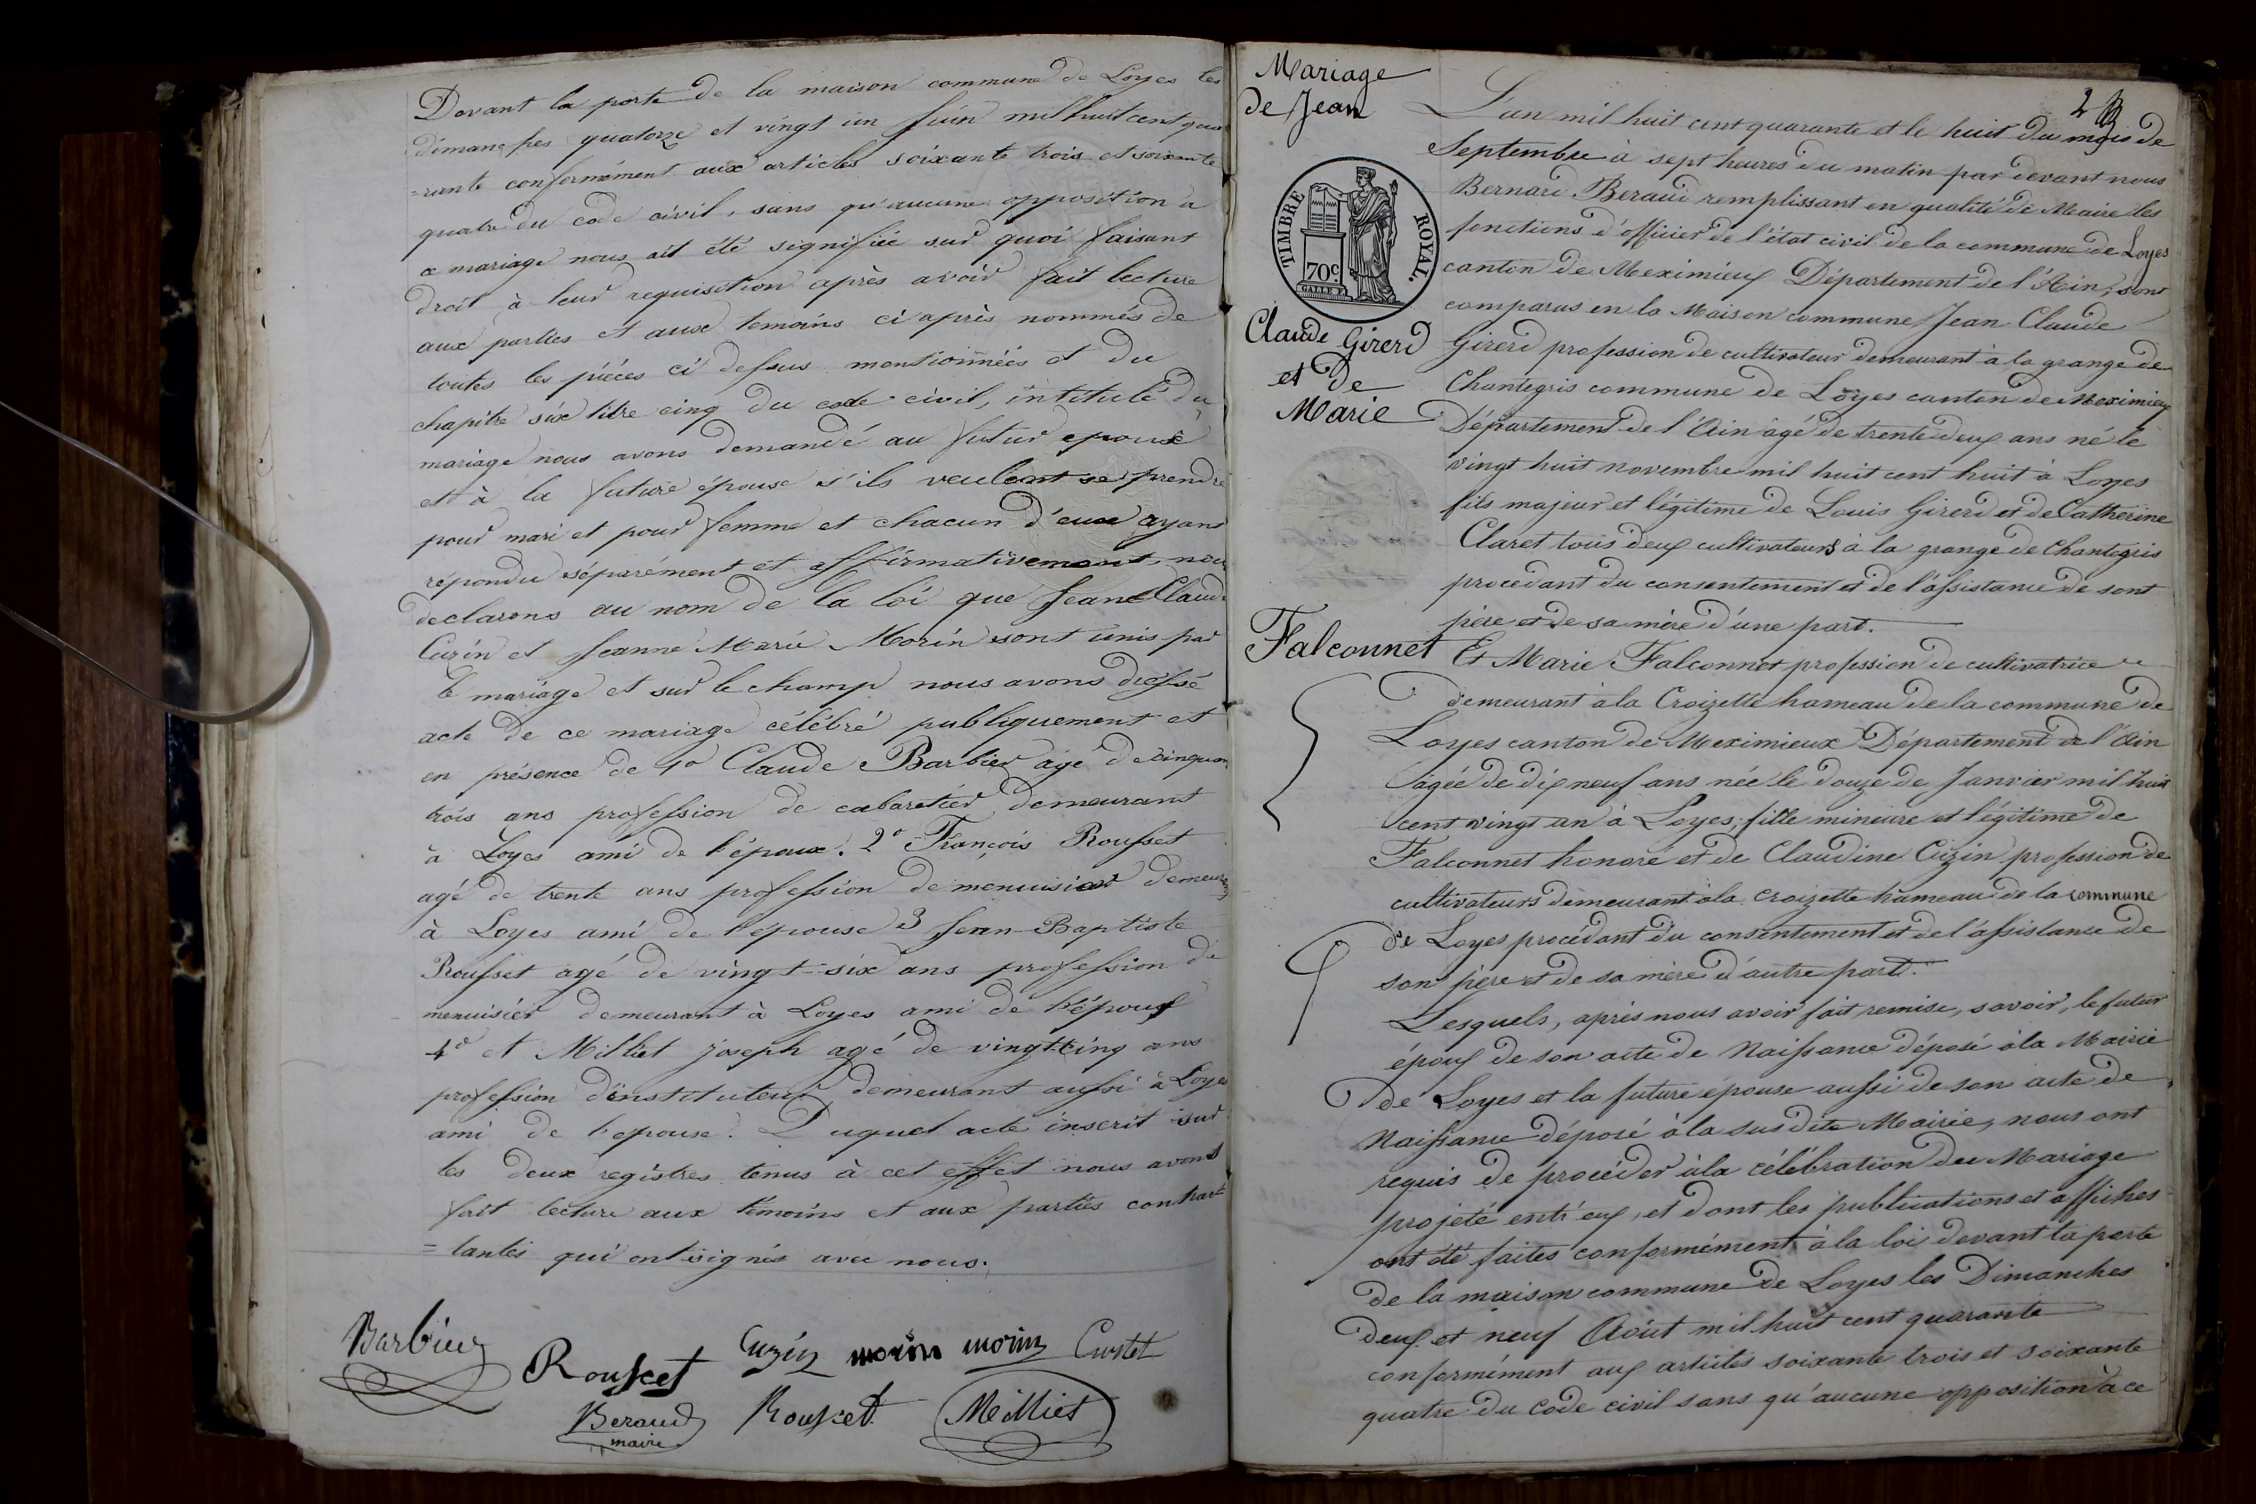 Devant la porte de la maison commune de Loyes les
dimanches quatorze et vingt un Juin mil huit cent qua
=rante conformément aux articles soixante trois et soixante
quatre du code civil, sans qu'aucune opposition à
ce mariage nous ait été signifiée sur quoi faisant
droit à leur requisition après avoir fait lecture
aux parties et aux temoins ci après nommés de
toutes les pièces ci dessus mentionnées et du
chapitre six titre cinq du code civil, intitulé du
mariage nous avons demandé au futur epoux
et à la future épouse s'ils veulent se prendre
pour mari et pour femme et chacun d'eux ayant
répondu séparément et affirmativement, nous
declarons au nom de la loi que Jean Claude
Cuzin et Jeanne Marie Morin sont unis par
le mariage et sur le champ nous avons dressé
acte de ce mariage célébré publiquement et
en présence de 1º Claude Barbier agé de cinquan
trois ans profession de cabaretier demeurant
à Loyes ami de l'époux. 2º François Rousset
agé de trente ans profession de menuisier demeurant
à Loyes ami de l'epouse 3 Jean-Baptiste
Rousset agé de vingt-six ans profession de
menuisier demeurant à Loyes ami de l'époux
4º et Milliet Joseph agé de vingt-cinq ans
profession d'instituteur demeurant aussi à Loyes
ami de l'epouse. Duquel acte inscrit sur
les deux registres tenus à cet effet nous avons
fait lecture aux témoins et aux parties contrac
=tantes qui ont signés avec nous.
Barbier Rousset Cuzin morin morin Curtet
Beraud maire Rousset Milliet
Mariage
de Jean
TIMBRE ROYAL.
70c
GALLE F.
Claude Girerd
et de
Marie
Falconnet
2
L'an mil huit cent quarante et le huit du mois de
Septembre à sept heures du matin par devant nous
Bernard Beraud remplissant en qualité de Maire les
fonctions d'officier de l'état civil de la commune de Loyes
canton de Meximieux Département de l'Ain, sont
comparus en la Maison commune Jean Claude
Girerd profession de cultivateur demeurant à la grange de
Chantegris commune de Loyes canton de Meximieux
Département de l'Ain agé de trente deux ans né le
vingt huit novembre mil huit cent huit à Loyes
fils majeur et légitime de Louis Girerd et de Catherine
Claret tous deux cultivateurs à la grange de Chantegris
procédant du consentement et de l'assistance de sont
père et de sa mère d'une part.
Et Marie Falconnet profession de cultivatrice
demeurant à la Croizette hameau de la commune de
Loyes canton de Meximieux Département de l'Ain
agée de dix neuf ans née le douze de Janvier mil huit
cent vingt un à Loyes, fille mineure et légitime de
Falconnet honoré et de Claudine Cuzin profession de
cultivateurs demeurant à la croizette hameau de la commune
de Loyes procédant du consentement et de l'assistance de
son père et de sa mère d'autre part.
Lesquels, après nous avoir fait remise, savoir, le futur
époux de son acte de Naissance déposé à la Mairie
de Loyes et la future épouse aussi de son acte de
Naissance déposé à la sus dite Mairie, nous ont
requis de procéder à la célébration du Mariage
projeté entr'eux, et dont les publications et affiches
ont été faites conformément à la loi devant la porte
de la maison commune de Loyes les Dimanches
deux et neuf Août mil huit cent quarante
conformément aux articles soixante trois et soixante
quatre du code civil sans qu'aucune opposition à ce